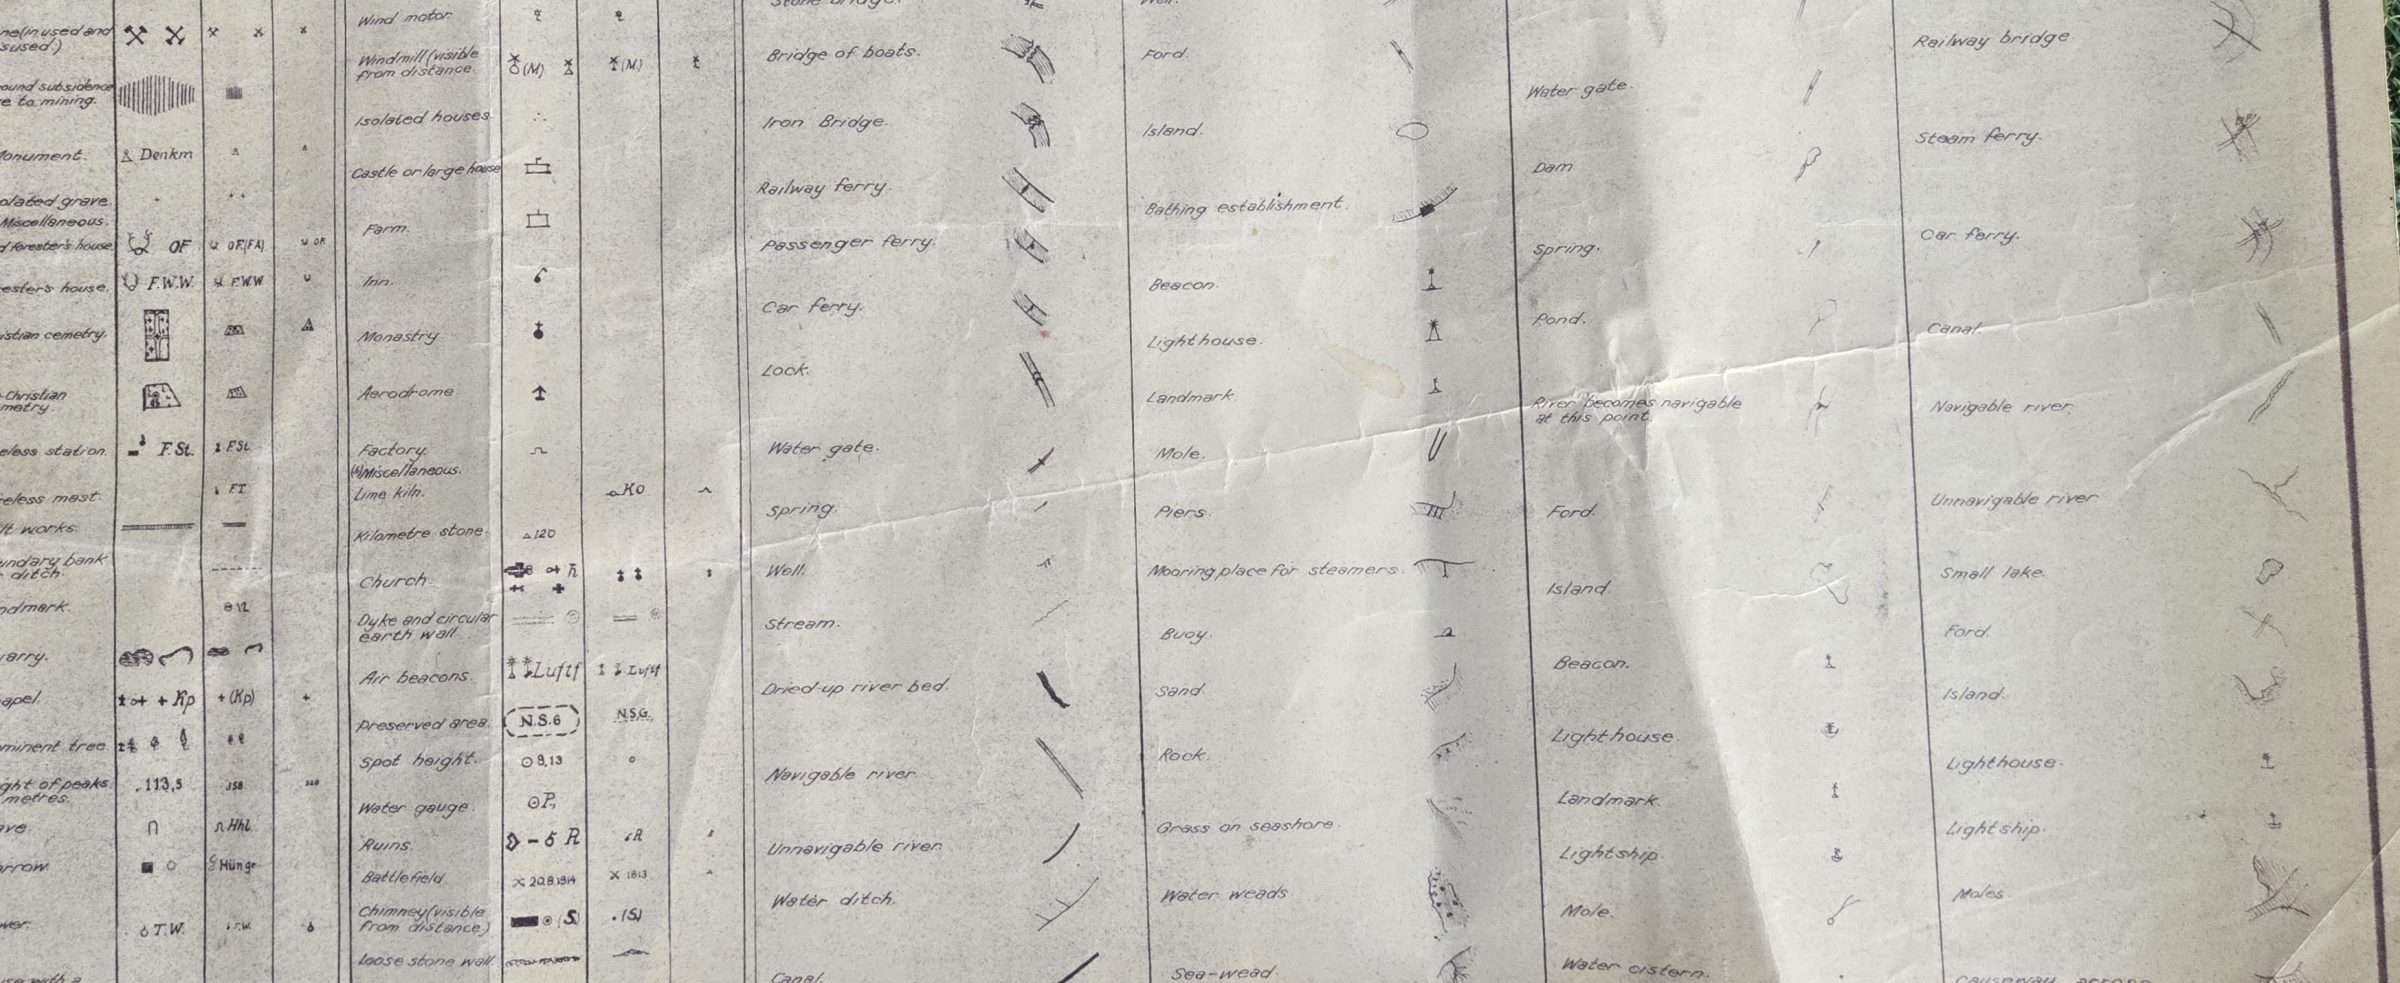 ne (in used and
sused.)
ound subsidence
e to mining.
onument.
Denkm
olated grave.
Miscellaneous.
d forester's house
OF
OF.(FA)
OF.
ester's house.
F.W.W.
F.W.W
istian cemetry.
-Christian
metry.
eless station.
F.St.
F.St.
eless mast.
FT.
lt works.
undary bank
ditch.
ndmark.
12
arry.
apel.
Kp
(Kp)
minent tree.
ght of peaks
metres.
.113,5
358
ave.
Hhl.
rrow.
Hüngr
wer.
T.W.
T.W.
use with a
Wind motor.
Windmill (visible
from distance.
(M)
(M)
Isolated houses.
Castle or large house
Farm.
Inn.
Monastry
Aerodrome
Factory.
Miscellaneous.
Lime kiln.
KO
Kilometre stone.
120
Church.
Dyke and circular
earth wall.
Air beacons.
Luftf
Luftf
Preserved area.
N.S.G
N.S.G.
Spot height.
9,13
Water gauge.
P.
Ruins.
R
R
Battlefield.
20.8.1914
1813
Chimney (visible
from distance.)
(S.)
(S)
Loose stone wall.
Stone bridge.
Bridge of boats.
Iron Bridge.
Railway ferry.
Passenger ferry.
Car ferry.
Lock.
Water gate.
Spring.
Well.
Stream.
Dried-up river bed.
Navigable river.
Unnavigable river.
Water ditch.
Canal.
Well.
Ford.
Island.
Bathing establishment.
Beacon.
Lighthouse.
Landmark.
Mole.
Piers.
Mooring place for steamers.
Buoy.
Sand.
Rock.
Grass on seashore.
Water weads
Sea-wead.
Water gate.
Dam
Spring.
Pond.
River becomes navigable
at this point.
Ford.
Island.
Beacon.
Lighthouse.
Landmark.
Lightship.
Mole.
Water cistern.
Railway bridge.
Steam ferry.
Car ferry.
Canal.
Navigable river.
Unnavigable river
Small lake.
Ford.
Island.
Lighthouse.
Lightship.
Moles
Causeway across